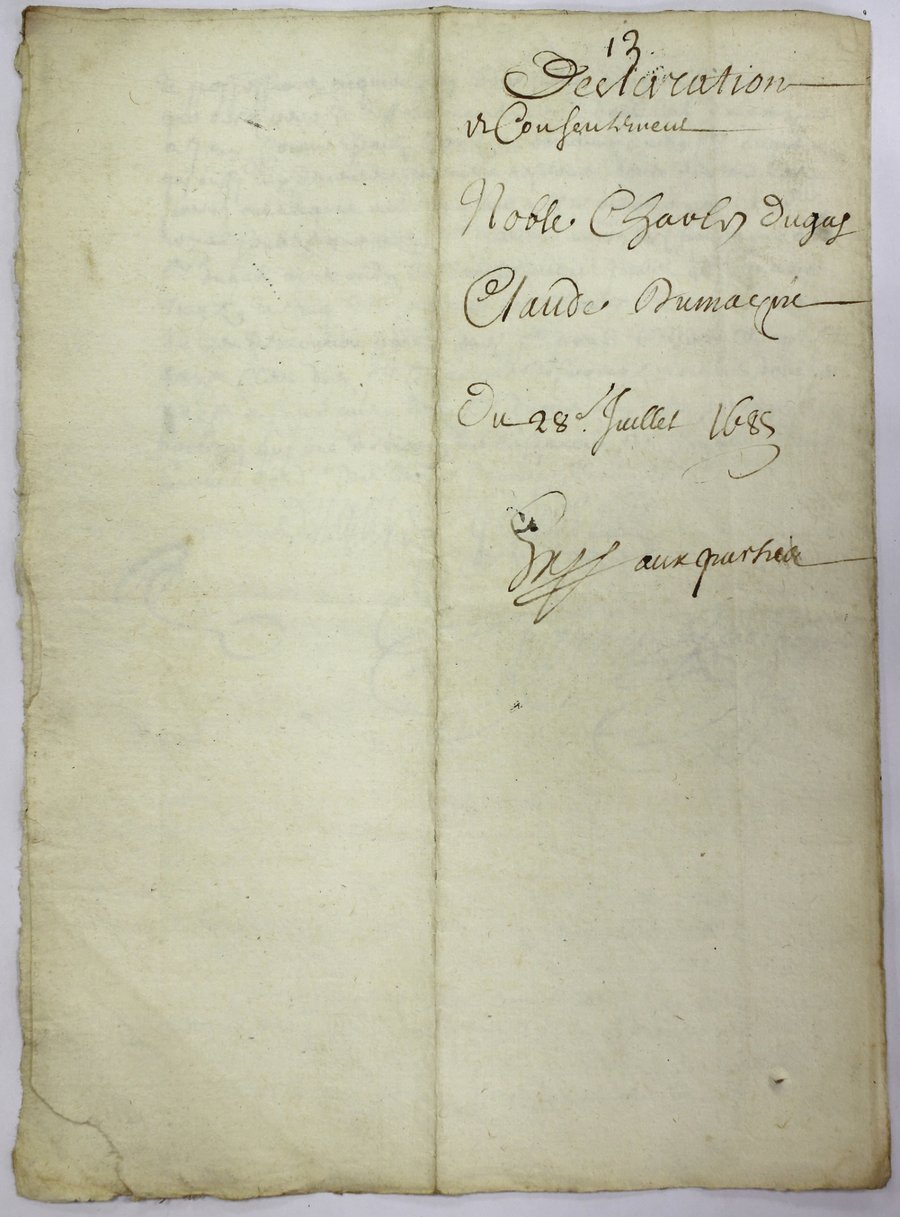 13
Declaration
et Consentement
Noble Charles Dugas
Claude Dumacqúe
Du 28e Juillet 1685
Exp aux parties